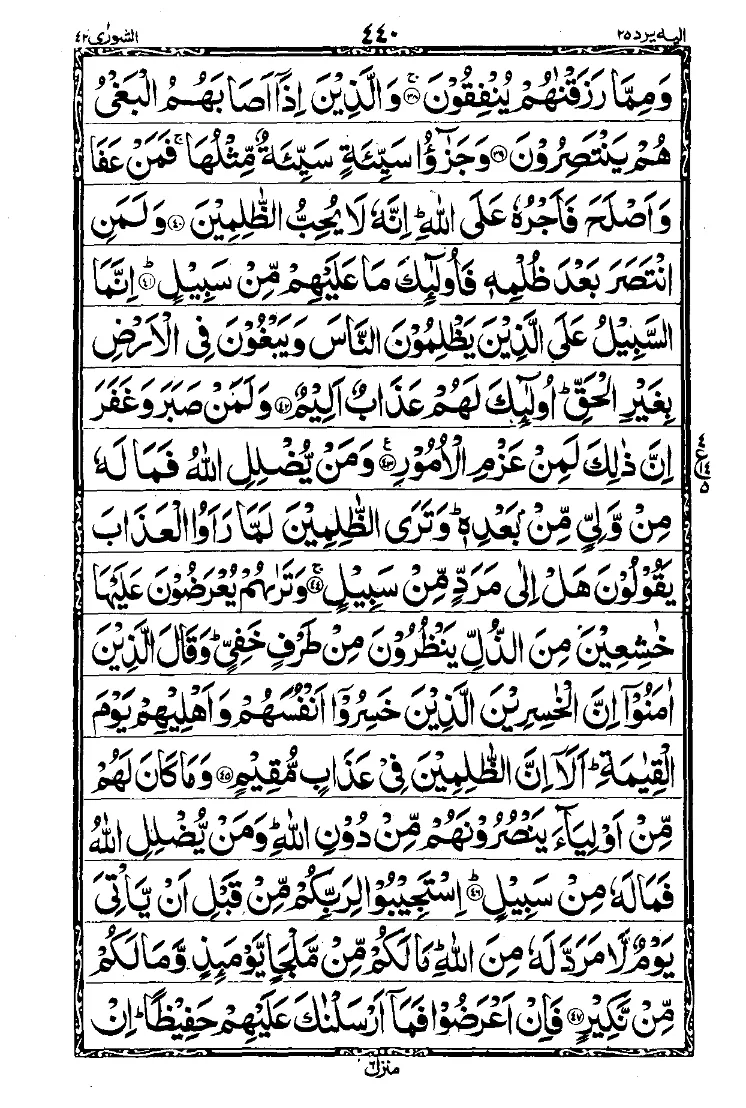 الیه یرد ۲۵ ۴۴۰ الشورٰی ۴۲
وَمِمَّا رَزَقْنٰهُمْ یُنْفِقُوْنَ ۚ‏﴿۳۸﴾ وَالَّذِیْنَ اِذَاۤ اَصَابَهُمُ الْبَغْیُ
هُمْ یَنْتَصِرُوْنَ ﴿۳۹﴾ وَجَزٰٓؤُا سَیِّئَةٍ سَیِّئَةٌ مِّثْلُهَا ۚ فَمَنْ عَفَا
وَاَصْلَحَ فَاَجْرُهٗ عَلَی اللّٰهِ ؕ اِنَّهٗ لَا یُحِبُّ الظّٰلِمِیْنَ ﴿۴۰﴾ وَلَمَنِ
انْتَصَرَ بَعْدَ ظُلْمِهٖ فَاُولٰٓئِكَ مَا عَلَیْهِمْ مِّنْ سَبِیْلٍ ؕ﴿۴۱﴾ اِنَّمَا
السَّبِیْلُ عَلَی الَّذِیْنَ یَظْلِمُوْنَ النَّاسَ وَیَبْغُوْنَ فِی الْاَرْضِ
بِغَیْرِ الْحَقِّ ؕ اُولٰٓئِكَ لَهُمْ عَذَابٌ اَلِیْمٌ ﴿۴۲﴾ وَلَمَنْ صَبَرَ وَغَفَرَ
اِنَّ ذٰلِكَ لَمِنْ عَزْمِ الْاُمُوْرِ ﴿۴۳﴾ وَمَنْ یُّضْلِلِ اللّٰهُ فَمَا لَهٗ
مِنْ وَّلِیٍّ مِّنْۢ بَعْدِهٖ ؕ وَتَرَی الظّٰلِمِیْنَ لَمَّا رَاَوُا الْعَذَابَ
یَقُوْلُوْنَ هَلْ اِلٰی مَرَدٍّ مِّنْ سَبِیْلٍ ۚ﴿۴۴﴾ وَتَرٰىهُمْ یُعْرَضُوْنَ عَلَیْهَا
خٰشِعِیْنَ مِنَ الذُّلِّ یَنْظُرُوْنَ مِنْ طَرْفٍ خَفِیٍّ ؕ وَقَالَ الَّذِیْنَ
اٰمَنُوْۤا اِنَّ الْخٰسِرِیْنَ الَّذِیْنَ خَسِرُوْۤا اَنْفُسَهُمْ وَاَهْلِیْهِمْ یَوْمَ
الْقِیٰمَةِ ؕ اَلَاۤ اِنَّ الظّٰلِمِیْنَ فِیْ عَذَابٍ مُّقِیْمٍ ﴿۴۵﴾ وَمَا كَانَ لَهُمْ
مِّنْ اَوْلِیَآءَ یَنْصُرُوْنَهُمْ مِّنْ دُوْنِ اللّٰهِ ؕ وَمَنْ یُّضْلِلِ اللّٰهُ
فَمَا لَهٗ مِنْ سَبِیْلٍ ؕ﴿۴۶﴾ اِسْتَجِیْبُوْا لِرَبِّكُمْ مِّنْ قَبْلِ اَنْ یَّاْتِیَ
یَوْمٌ لَّا مَرَدَّ لَهٗ مِنَ اللّٰهِ ؕ مَا لَكُمْ مِّنْ مَّلْجَاٍ یَّوْمَئِذٍ وَّمَا لَكُمْ
مِّنْ نَّكِیْرٍ ﴿۴۷﴾ فَاِنْ اَعْرَضُوْا فَمَاۤ اَرْسَلْنٰكَ عَلَیْهِمْ حَفِیْظًا ؕ اِنْ
منزل ۶